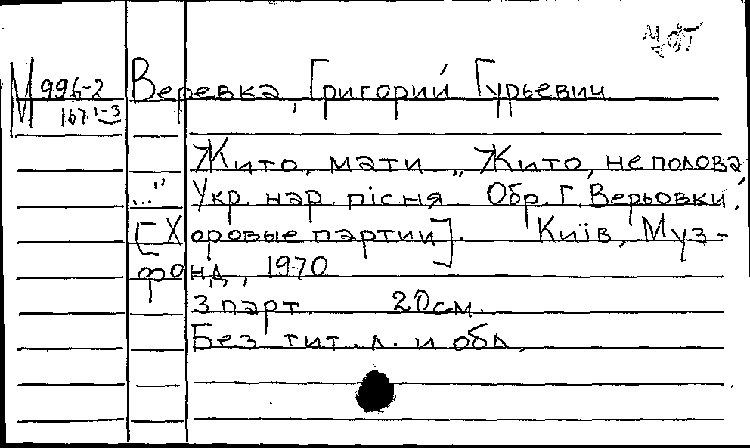 М 996-2 Веревка, Григорий Гурьевич
167 1-3
Жито, мати. „Жито, не полова,
..." Укр. нар. пісня. Обр. Г. Верьовки.
[Хоровые партии]. Київ, Муз-
фонд, 1970
3 парт. 20 см.
Без тит. л. и обл.